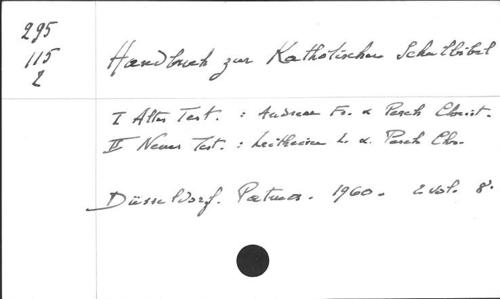 295
115
2
Handbuch zur Katholischen Schulbibel
I Altes Test. : Andreae Fr. & Pesch Christ.
II Neues Test. : Leitheiser L. & Pesch Chr.
Düsseldorf. Patmos. 1960. 2 vol. 8°.